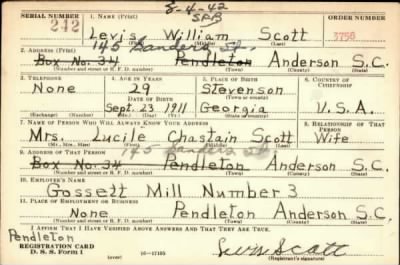 8-4-42
SPB
SERIAL NUMBER 1. NAME (Print) ORDER NUMBER
242 Levis William Scott 3758
(First) (Middle) (Last)
145 Sanders St.
2. ADDRESS (Print)
Box No. 34 Pendleton Anderson S.C.
(Number and street or R. F. D. number) (Town) (County) (State)
3. TELEPHONE 4. AGE IN YEARS 5. PLACE OF BIRTH 6. COUNTRY OF CITIZENSHIP
None 29 Stevenson
DATE OF BIRTH (Town or county)
Sept. 23 1911 Georgia U.S.A.
(Exchange) (Number) (Mo.) (Day) (Yr.) (State or country)
7. NAME OF PERSON WHO WILL ALWAYS KNOW YOUR ADDRESS 8. RELATIONSHIP OF THAT PERSON
Mrs. Lucile Chastain Scott Wife
(Mr., Mrs., Miss) (First) (Middle) (Last)
145 Sanders St
9. ADDRESS OF THAT PERSON
Box No. 34 Pendleton Anderson S.C.
(Number and street or R. F. D. number) (Town) (County) (State)
10. EMPLOYER'S NAME
Gossett Mill Number 3
11. PLACE OF EMPLOYMENT OR BUSINESS
None Pendleton Anderson S.C.
(Number and street or R. F. D. number) (Town) (County) (State)
I AFFIRM THAT I HAVE VERIFIED ABOVE ANSWERS AND THAT THEY ARE TRUE.
Pendleton
REGISTRATION CARD
D. S. S. Form 1 (over) 16—17105
Levis Scott